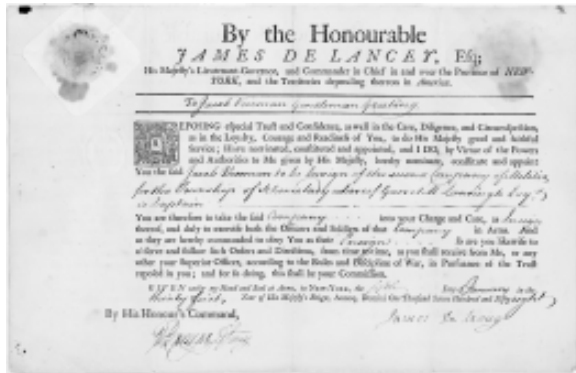 By the Honourable
JAMES DE LANCEY, Esq;
His Majesty's Lieutenant-Governor, and Commander in Chief in and over the Province of NEW-
YORK, and the Territories depending thereon in America.
To Jacob Vrooman Gentleman Greeting
REPOSING especial Trust and Confidence, as well in the Care, Diligence, and Circumspection,
as in the Loyalty, Courage and Readiness of You, to do His Majesty good and faithful
Service; Have nominated, constituted and appointed, and I DO, by Virtue of the Powers
and Authorities to Me given by His Majesty, hereby nominate, constitute and appoint
You the said Jacob Vrooman to be Ensign of the second Company of Militia
for the Township of Schenectady whereof
is Captain
You are therefore to take the said Company into your Charge and Care, as Ensign
thereof, and duly to exercise both the Officers and Soldiers of that Company in Arms. And
as they are hereby commanded to obey You as their Ensign So are you likewise to
observe and follow such Orders and Directions, from time to time, as you shall receive from Me, or any
other your Superior Officer, according to the Rules and Discipline of War, in Pursuance of the Trust
reposed in you; and for so doing, this shall be your Commission.
GIVEN under my Hand and Seal at Arms, in NEW-YORK, the Day of January in the
thirty first, Year of His Majesty's Reign, Annoq; Domini One Thousand Seven Hundred and Fifty eight
By His Honour's Command,
James De Lancey